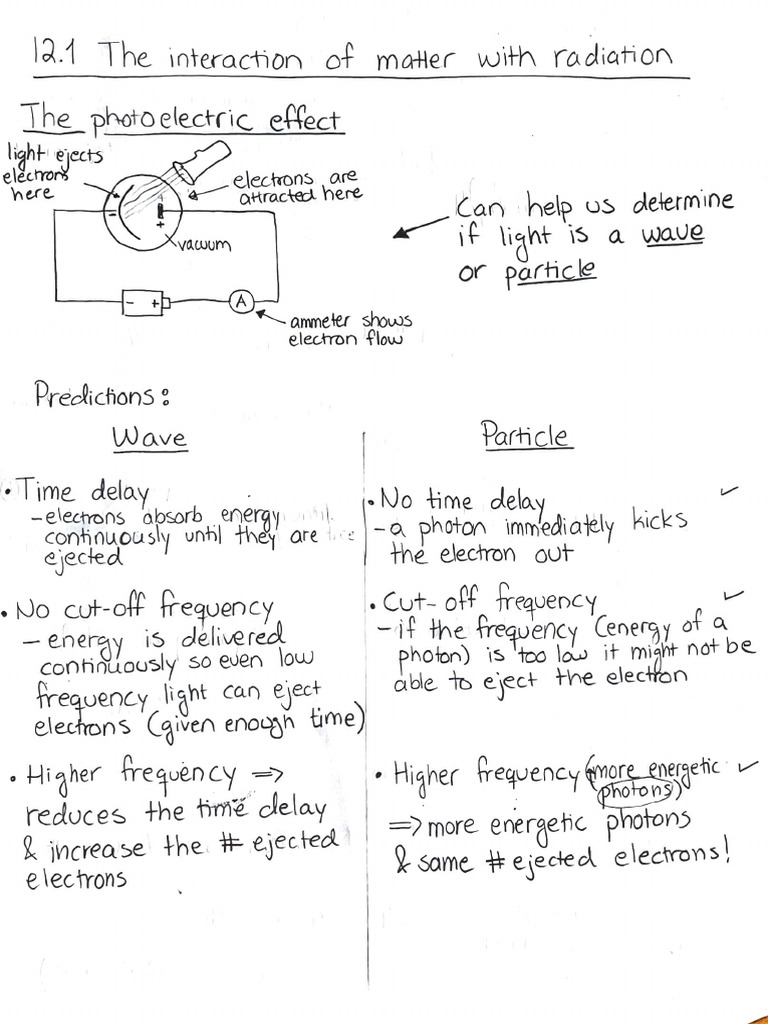 12.1 The interaction of matter with radiation
The photoelectric effect
light ejects
electrons
here
electrons are
attracted here
-
+
vacuum
- +
A
ammeter shows
electron flow
Can help us determine
if light is a wave
or particle
Predictions:
Wave
• Time delay
- electrons absorb energy
continuously until they are
ejected
• No cut-off frequency
- energy is delivered
continuously so even low
frequency light can eject
electrons (given enough time)
• Higher frequency ⇒
reduces the time delay
& increase the # ejected
electrons
Particle
• No time delay ✓
- a photon immediately kicks
the electron out
• Cut-off frequency ✓
- if the frequency (energy of a
photon) is too low it might not be
able to eject the electron
• Higher frequency (more energetic ✓
photons)
⇒ more energetic photons
& same # ejected electrons!